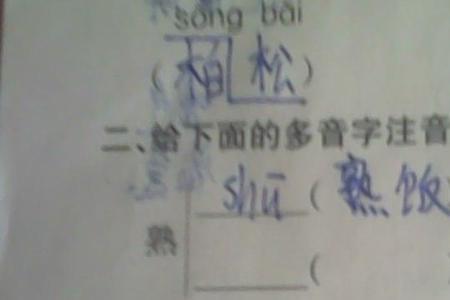 sōng bǎi
(柏松)
二、给下面的多音字注音
shū (熟饭
熟
(